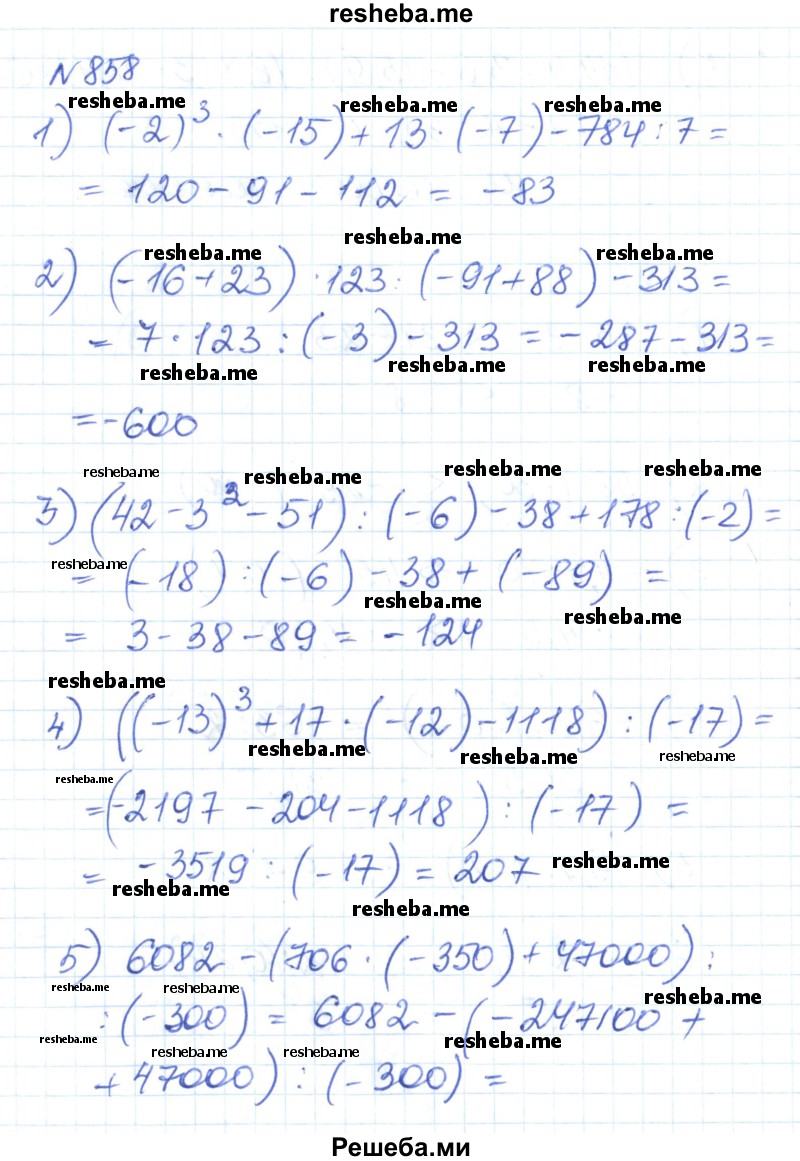 resheba.me
N 858
resheba.me resheba.me resheba.me
1) (-2)³ · (-15) + 13 · (-7) - 784 : 7 =
= 120 - 91 - 112 = -83
resheba.me
resheba.me resheba.me
2) (-16+23) · 123 : (-91+88) - 313 =
= 7 · 123 : (-3) - 313 = - 287 - 313 =
resheba.me resheba.me resheba.me
= -600
resheba.me resheba.me resheba.me resheba.me
3) (42 - 3² - 51) : (-6) - 38 + 178 : (-2) =
resheba.me
= (-18) : (-6) - 38 + (-89) =
resheba.me resheba.me
= 3 - 38 - 89 = - 124
resheba.me
4) ((-13)³ + 17 · (-12) - 1118) : (-17) =
resheba.me resheba.me resheba.me
resheba.me
= (-2197 - 204 - 1118) : (-17) =
= - 3519 : (-17) = 207
resheba.me resheba.me
resheba.me
5) 6082 - (706 · (-350) + 47000) :
resheba.me resheba.me resheba.me
: (-300) = 6082 - (-247100 +
resheba.me resheba.me resheba.me resheba.me
+ 47000) : (-300) =
Решеба.ми